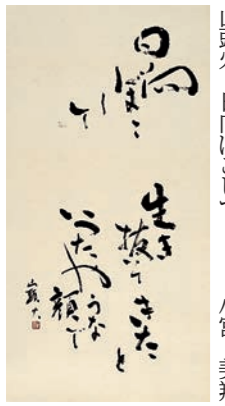 日向
ぼこ
して
生き
抜いて
きたと
いったやうな
顔で
山頭火